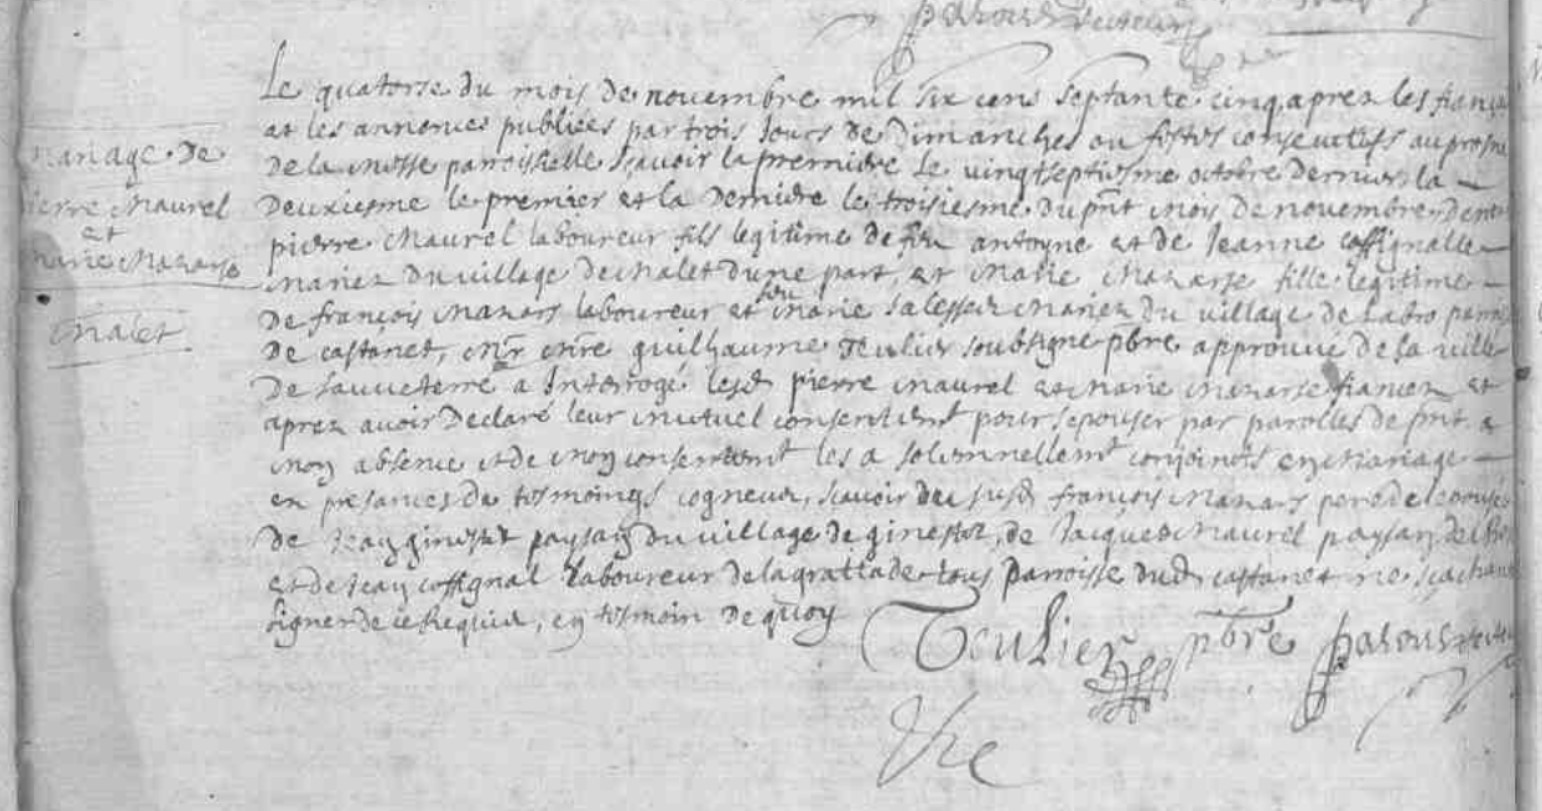 Le quatorse du mois de novembre mil six cens septante cinq, aprez les fiança
et les annonces publiees par trois jours de dimanches ou festes consecutifs au prosne
de la messe parroissielle scavoir la premiere le vingtseptiesme octobre dernier la
deuxiesme le premier et la derniere le troisiesme du pnt mois de novembre dentre
pierre Maurel laboureur fils legitime de feu antoyne et de Jeanne coffignalle
mariez du village de Malet dune part, et Marie Mazarse fille legitime
de françois Mazars laboureur et feu Marie salesses mariez du village de Ladro parroisse
de castanet, Mr Mre guilhaume Teulier soubsigne pbre approuvé de la ville
de sauveterre a Interrogé lesd pierre Maurel et Marie Mazarse fiancez et
aprez avoir declaré leur mutuel consentemt pour sepouser par parolles de pnt a
mon absence et de mon consentemt les a solemnellemt conjoincts en Mariage
en presances de tesmoings cogneux, scavoir du susd françois Mazars pere de lepouse
de Jean ginestet paysan du village de ginestet, de Jacques Maurel paysan de
et de Jean coffignal laboureur de la grattade tous parroisse dud castanet ne sçachant
signer de ce Requis, en tesmoin de quoy
Teulier pbre parours recteur
mariage de
pierre Maurel
et
marie Mazarse
Malet